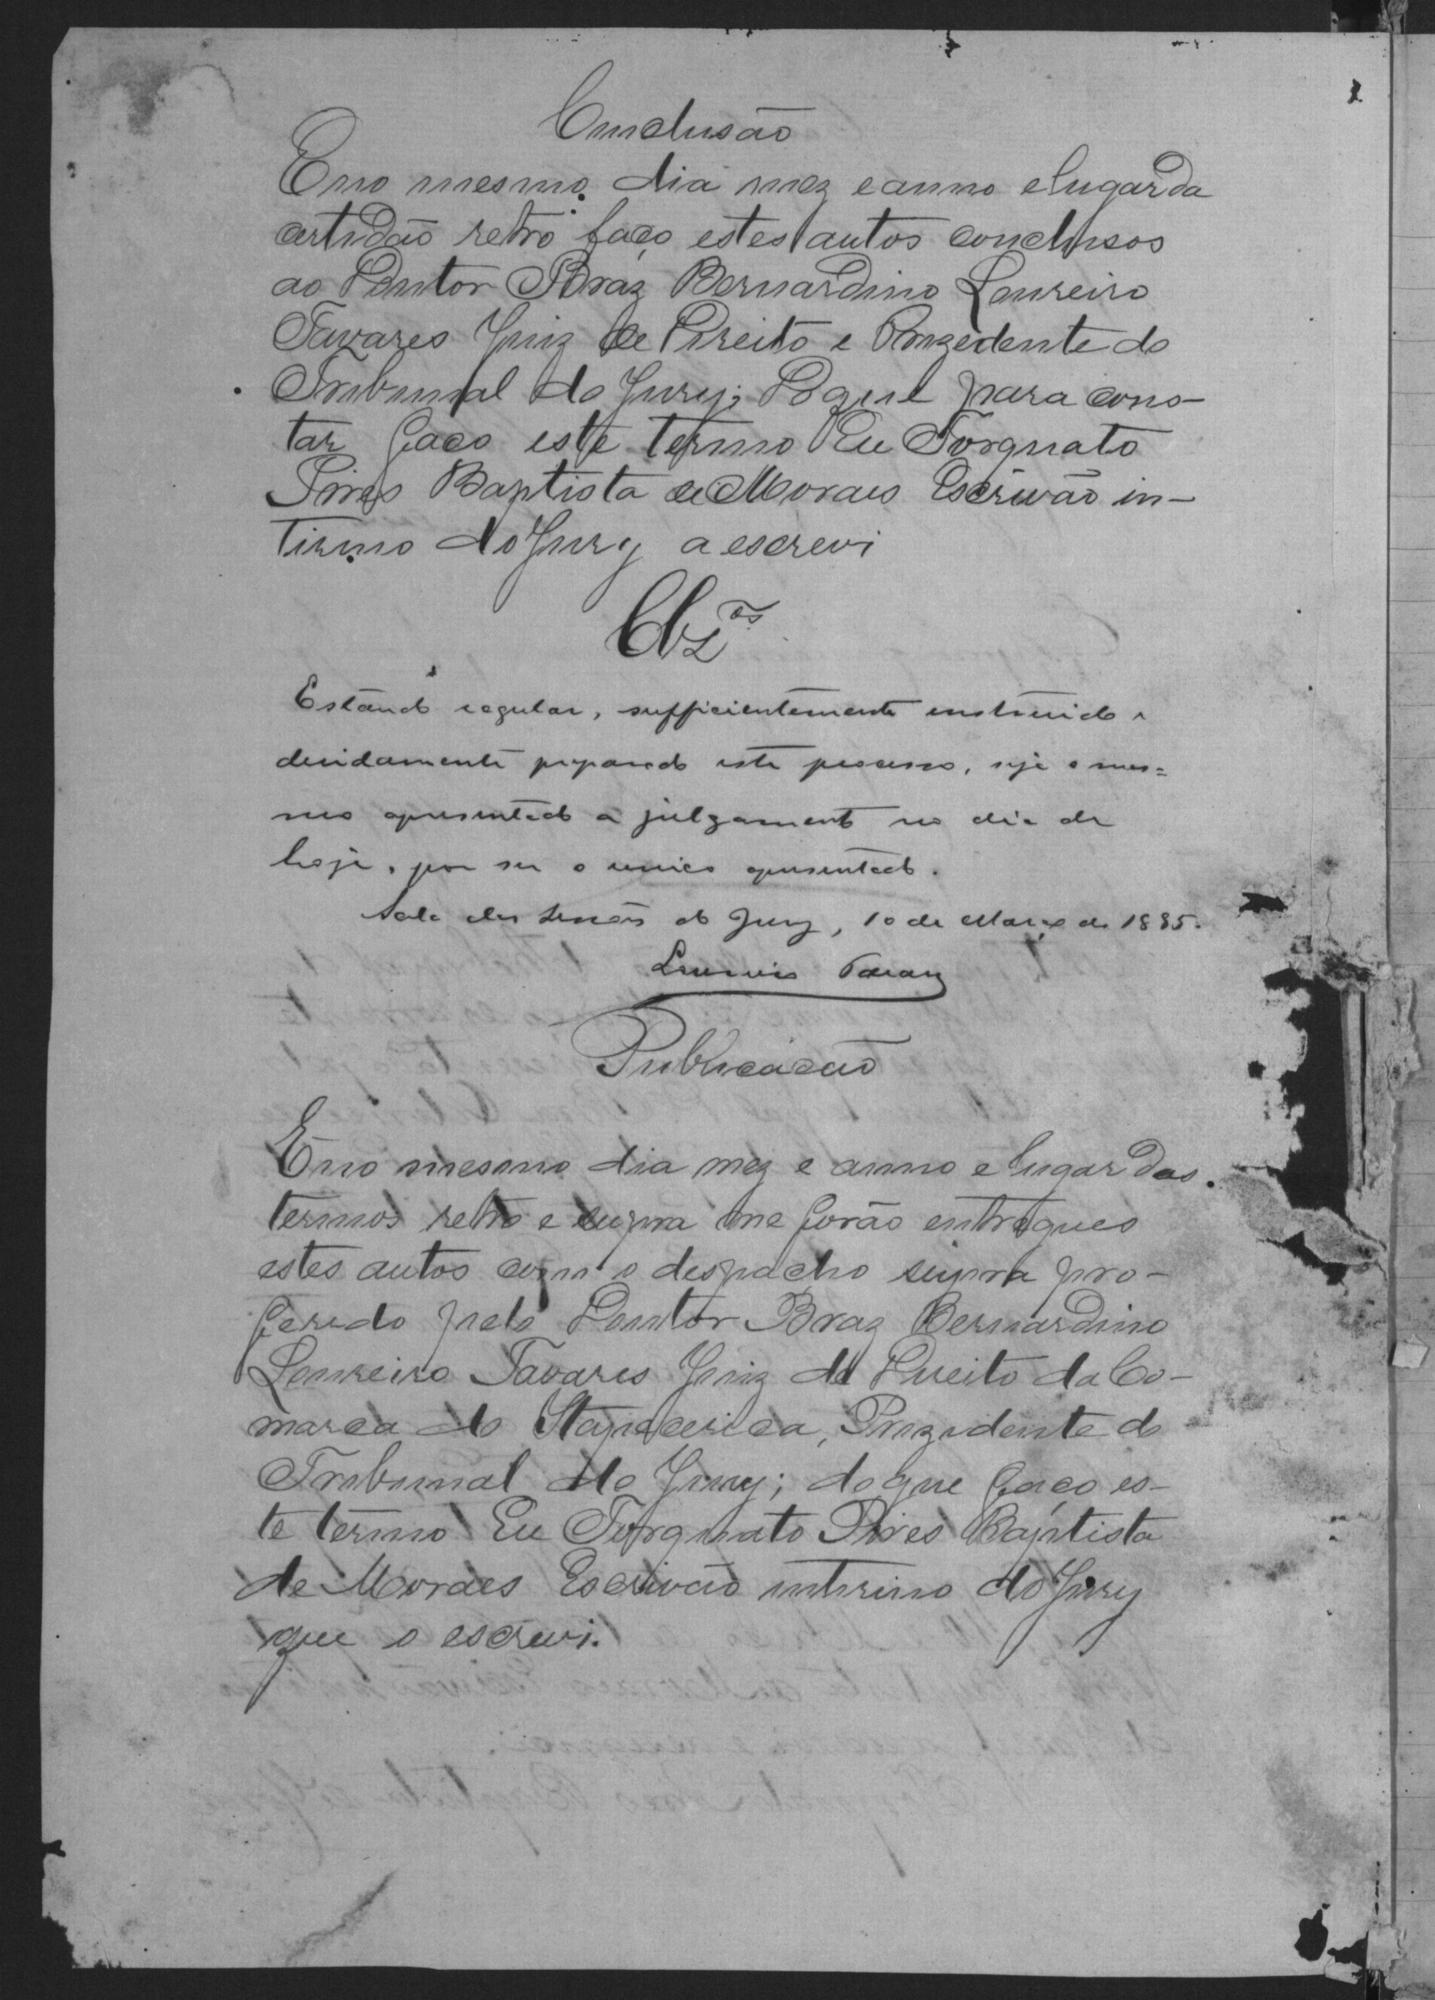 Conclusão
E no mesmo dia mez e anno e lugar da
certidão retro faço estes autos conclusos
ao Doutor Braz Bernardino Loureiro
Tavares Juiz de Direito e Prezedente do
Tribunal do Jury; Do que para cons-
tar faço este termo Eu Torquato
Pires Baptista de Moraes Escrivão in-
tirino do Jury a escrevi
Clzos
Estando regular, sufficientemente instruido e
devidamente preparado este processo, seja o mes=
mo apresentado a julgamento no dia de
hoje, por ser o unico apresentado.
Sala das Sessões do Jury, 10 de Março de 1885.
Loureiro Tavares
Publicação
E no mesmo dia mez e anno e lugar dos
termos retro e supra me forão entregues
estes autos com o despacho supra pro-
ferido pelo Doutor Braz Bernardino
Loureiro Tavares Juiz de Direito da Co-
marca de Itapecerica, Prezidente do
Tribunal do Jury; do que faço es-
te termo Eu Torquato Pires Baptista
de Moraes Escrivão intirino do Jury
que o escrevi.